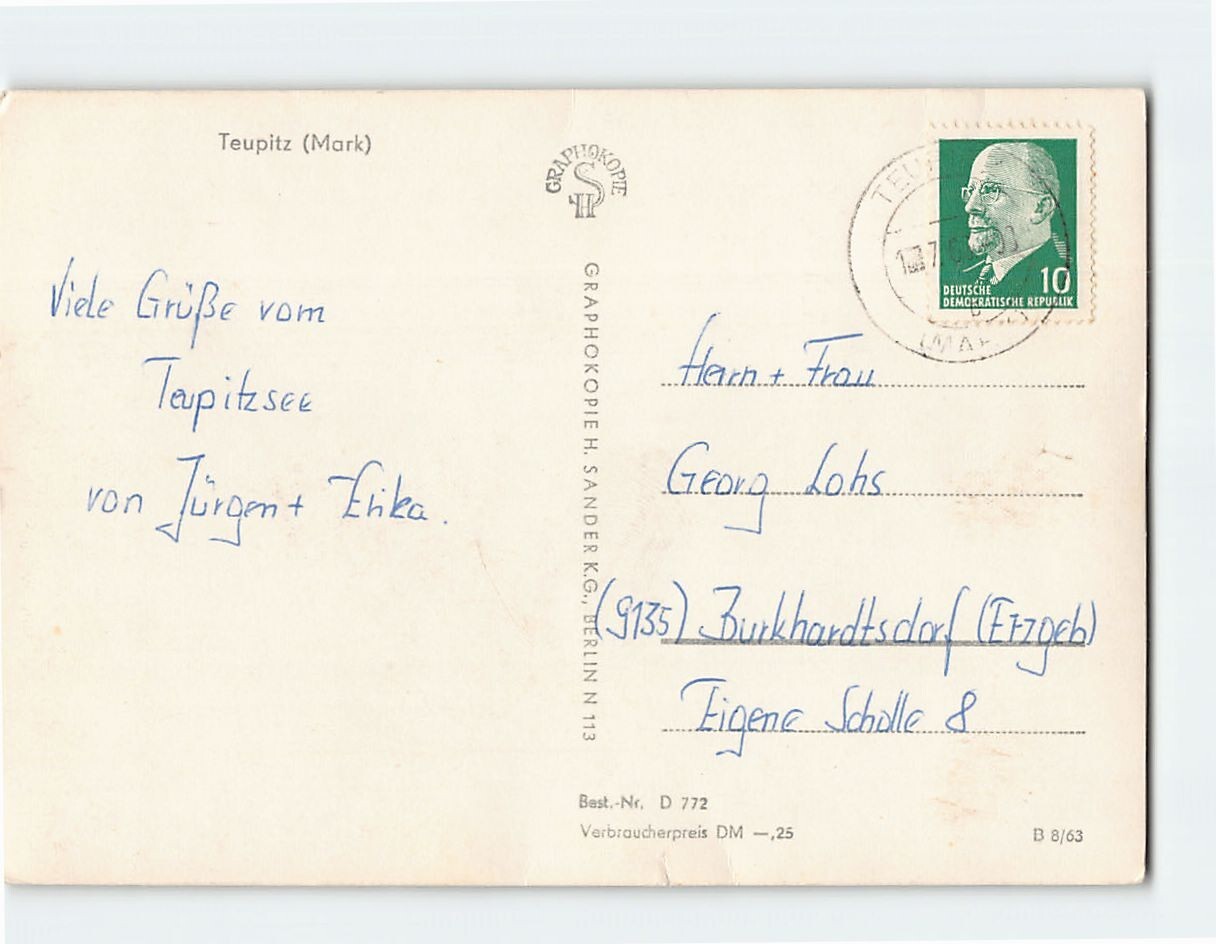 Teupitz (Mark)
GRAPHOKOPIE
H S
DEUTSCHE
DEMOKRATISCHE REPUBLIK
10
Viele Grüße vom
Teupitzsee
von Jürgen + Erika.
GRAPHOKOPIE H. SANDER K.G., BERLIN N 113
Herrn + Frau
Georg Lohs
(9135) Burkhardtsdorf (Erzgeb)
Eigene Scholle 8
Best.-Nr. D 772
Verbraucherpreis DM —,25
B 8/63